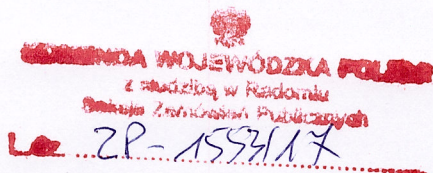 KOMENDA WOJEWÓDZKA POLICJI
z siedzibą w Radomiu
Sekcja Zamówień Publicznych
L.dz. ZP-1553/17